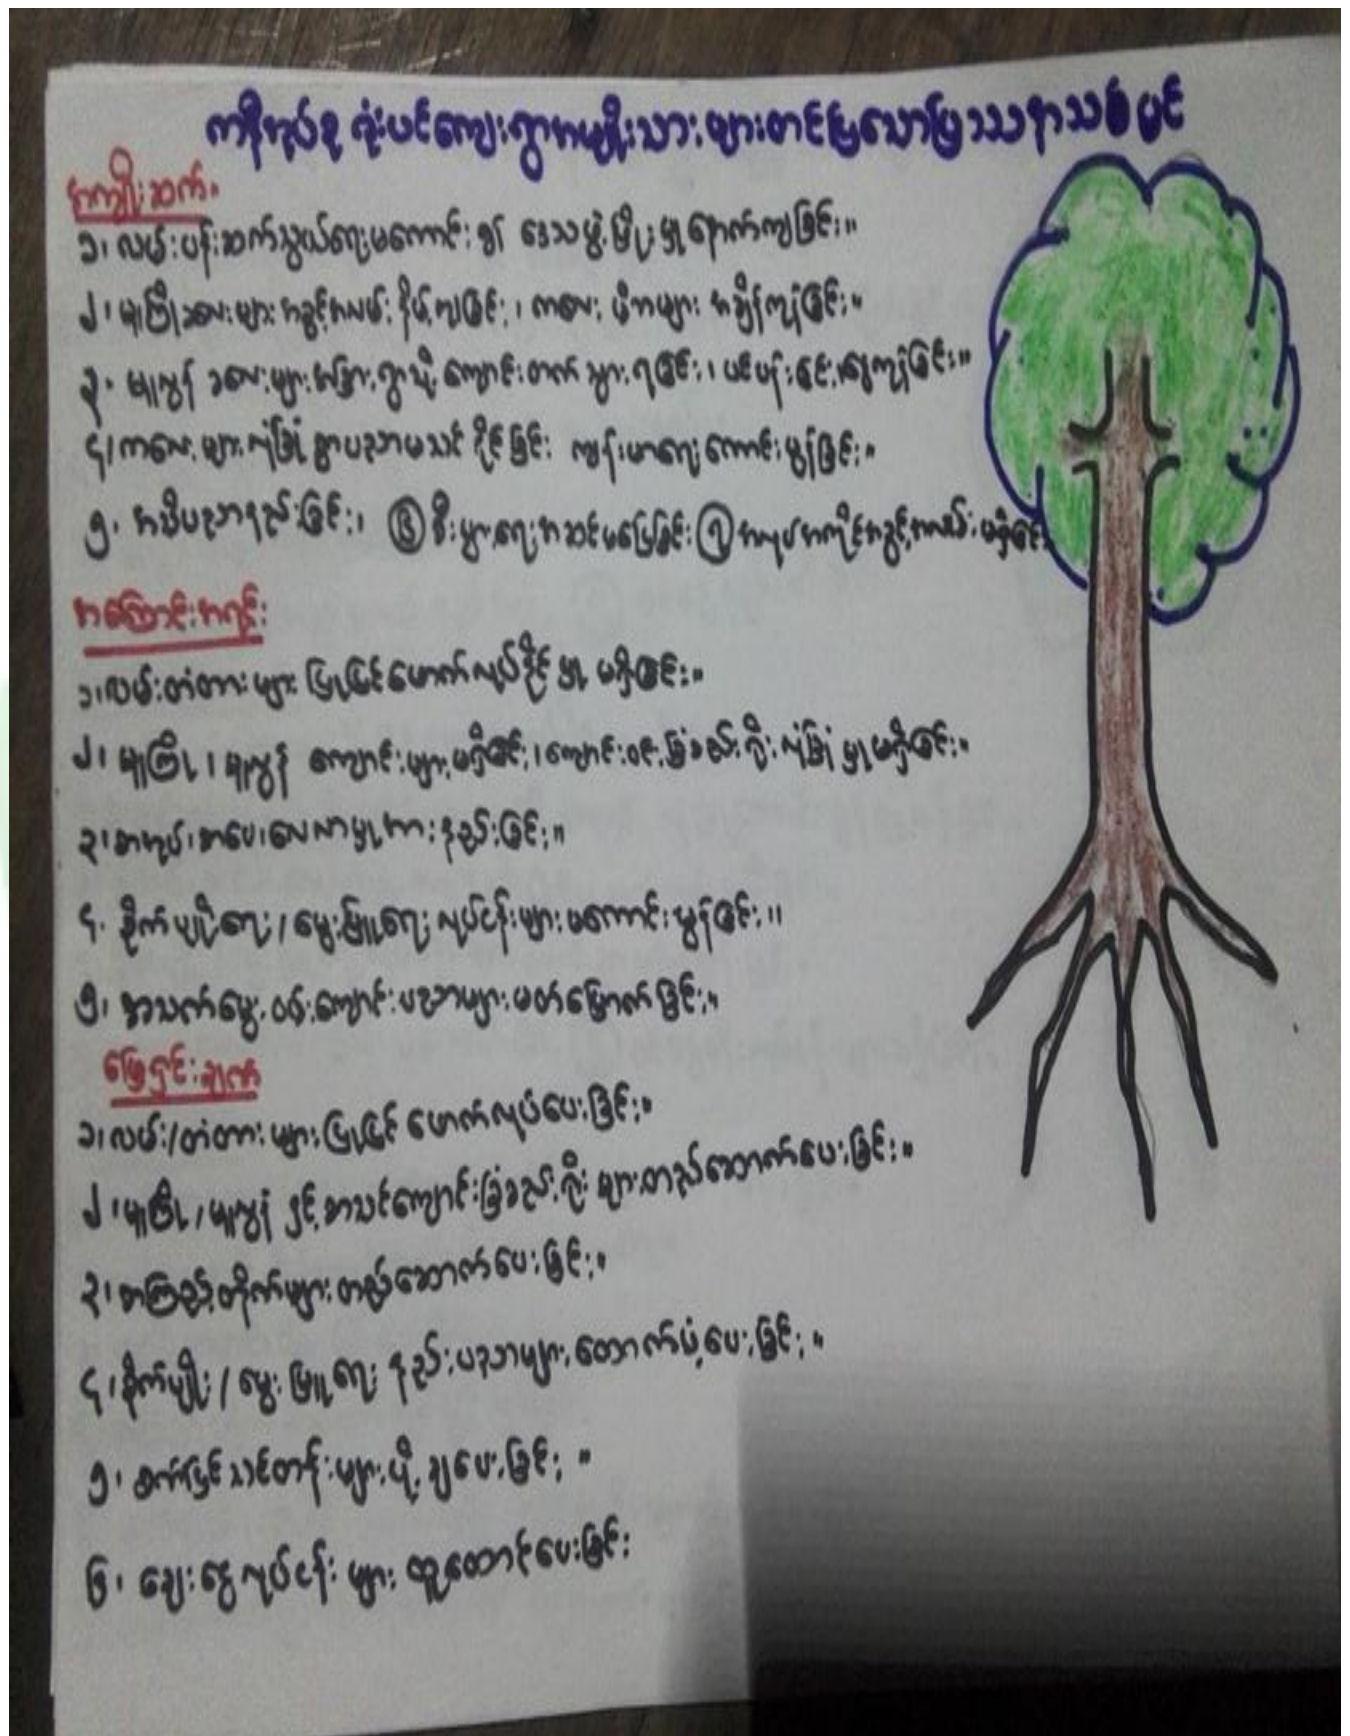 ကနီအုပ်စု ရုံးပင်ကျေးရွာအမျိုးသားများတင်ပြသောပြဿနာသစ်ပင်
အကျိုးဆက်။
၁၊ လမ်းပန်းဆက်သွယ်ရေးမကောင်းမွန် ဒေသဖွံ့ဖြိုးမှုနောက်ကျခြင်း။
၂၊ မူကြိုကလေးများ အခွင့်အလမ်း နိမ့်ကျခြင်း၊ ကလေး မိဘများ အချိန်ကုန်ခြင်း။
၃၊ မူလွန် ကလေးများ အခြားရွာသို့ ကျောင်းတက် သွားရခြင်း၊ ပင်ပန်းခြင်း၊ ငွေကုန်ခြင်း။
၄၊ ကလေးများ လုံခြုံစွာပညာမသင်နိုင်ခြင်း ကျန်းမာရေးကောင်းမွန်ခြင်း။
၅၊ အသိပညာနည်းခြင်း၊ ⑥ စီးပွားရေးအဆင်မပြေခြင်း ⑦ အလုပ်အကိုင်အခွင့်အလမ်းမရှိခြင်း
အကြောင်းအရင်း
၁၊ လမ်းတံတားများ ပြုပြင်ဖောက်လုပ်နိုင်မှု မရှိခြင်း။
၂၊ မူကြို၊ မူလွန် ကျောင်းများမရှိခြင်း၊ ကျောင်းဝင်းခြံစည်းရိုး လုံခြုံမှုမရှိခြင်း။
၃၊ စာအုပ်စာပေလေ့လာမှုအားနည်းခြင်း။
၄၊ စိုက်ပျိုးရေး / မွေးမြူရေး လုပ်ငန်းများ မကောင်းမွန်ခြင်း။
၅၊ အသက်မွေးဝမ်းကျောင်းပညာများ မတတ်မြောက်ခြင်း။
ဖြေရှင်းချက်
၁၊ လမ်း/တံတားများ ပြုပြင် ဖောက်လုပ်ပေးခြင်း။
၂၊ မူကြို / မူလွန် နှင့် စာသင်ကျောင်းခြံစည်းရိုး များတည်ဆောက်ပေးခြင်း။
၃၊ စာကြည့်တိုက်များ တည်ဆောက်ပေးခြင်း။
၄၊ စိုက်ပျိုး / မွေးမြူရေး နည်းပညာများ ထောက်ပံ့ပေးခြင်း။
၅၊ စက်ပြင်သင်တန်းများ ပို့ချပေးခြင်း။
၆၊ ချေးငွေလုပ်ငန်း များ ထူထောင်ပေးခြင်း